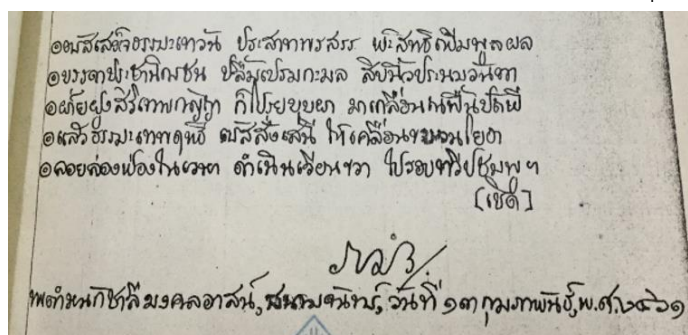 ๏ ตรัสเสร็จธรรมะเทวัน ประสาทพรสรร พะสิทธิเปี่ยมพูลผล
๏ บรรดาประชานิกรชน ปลื้มเปรมกะมล สิบนิ้วประนมวันทา
๏ ฝ่ายฝูงสิริเทพกัญญา ก็โปรยบุบผา มาเกลื่อน ณ พื้นปัถพี
๏ แล้วธรรมะเทพฤทธี ตรัสสั่งเสนี ให้เคลื่อนขบวนไคลคลา
๏ ลอยล่องฟ่องในเวหา ดำเนินเวียนขวา ไปรอบทวีปชมพู ฯ
[เชิด]
พระตำหนักชาลีมงคลอาสน์, สนามจันทร์, วันที่ ๑๓ กุมภาพันธ์, พ.ศ. ๒๔๖๑